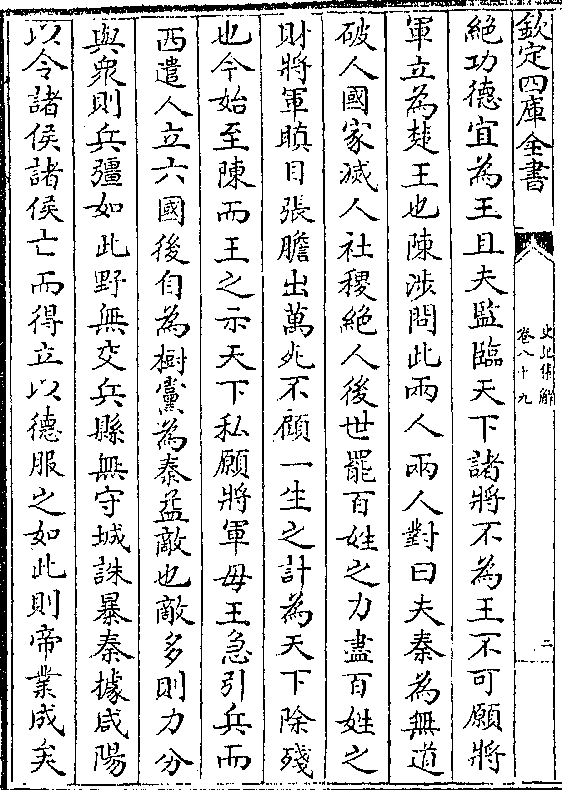 欽定四庫全書
史記集解
卷八十九
二
絶功德宜為王且夫監臨天下諸將不為王不可願將
軍立為楚王也陳涉問此兩人兩人對曰夫秦為無道
破人國家滅人社稷絶人後世罷百姓之力盡百姓之
財將軍瞋目張膽出萬死不顧一生之計為天下除殘
也今始至陳而王之示天下私願將軍毋王急引兵而
西遣人立六國後自為樹黨為秦益敵也敵多則力分
與衆則兵彊如此野無交兵縣無守城誅暴秦據咸陽
以令諸侯諸侯亡而得立以德服之如此則帝業成矣